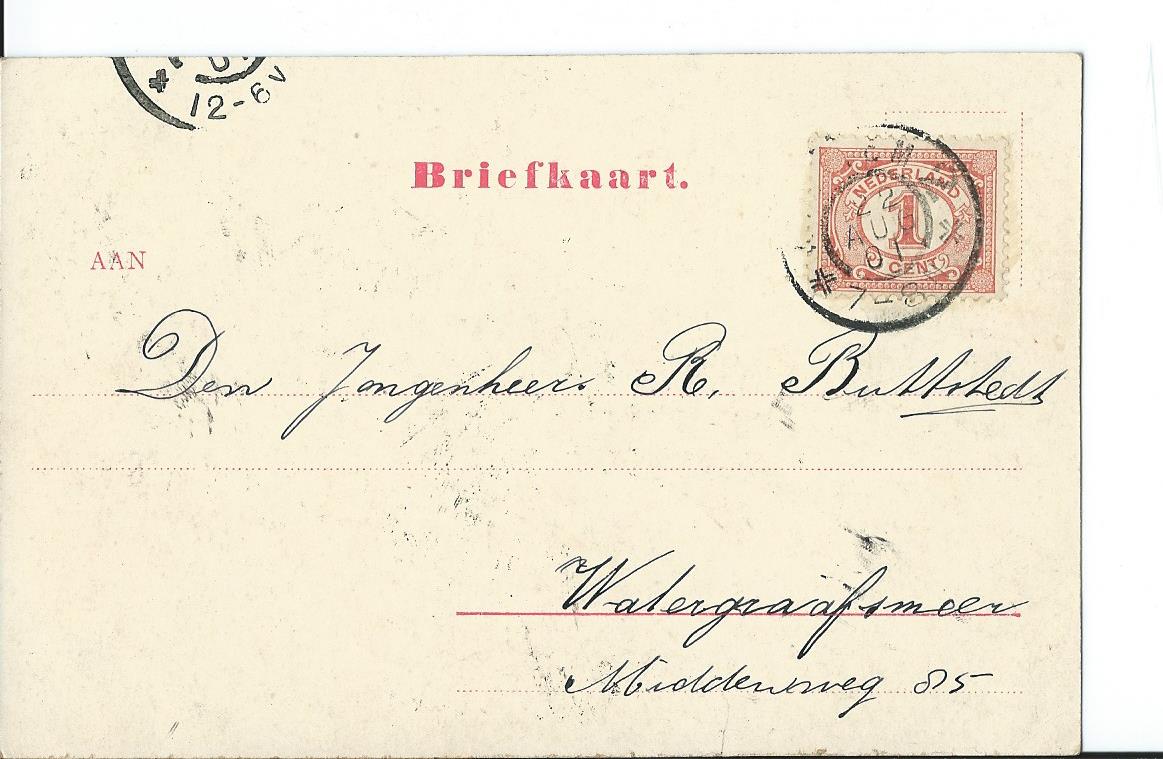 12-6V
Briefkaart.
NEDERLAND
1
CENT
22
AUG
01
7-8
AAN
Den Jongenheer R. Buttstedt
Watergraafsmeer
Middenweg 85